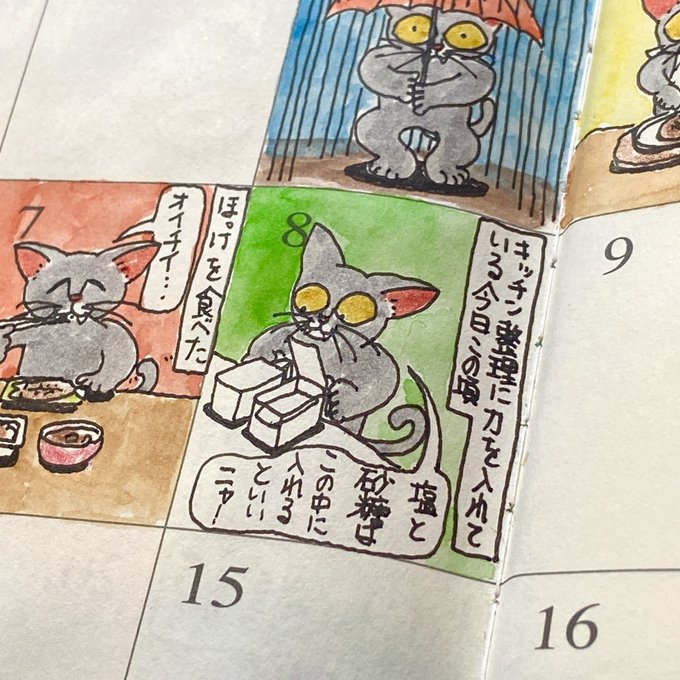 7
オイチイ…
ほっけを食べた
8
キッチン整理に力を入れて
いる今日この頃
塩と
砂糖は
この中に
入れる
といい
ニャー
9
15
16